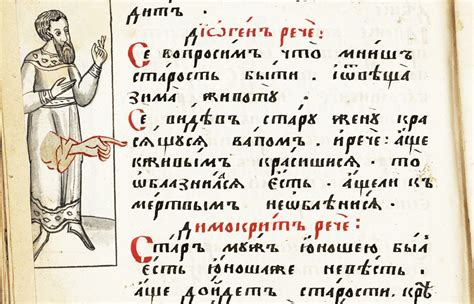 дитъ.
дїѡгенъ рече:
Се вопросимъ что мниш
старость быти. іѿвѣща
зима животꙋ.
Се видѣвъ старꙋ женꙋ кра
сѧщꙋсѧ вапомъ. ирече: аще
кживымъ красишисѧ. то
ѡблазниласѧ есть. ащели къ
мертвымъ нешблѣнисѧ.
димокритъ рече:
Старъ мꙋжъ юношею был
есть юношаже невѣсть.
аще доидетъ старости. крѣ